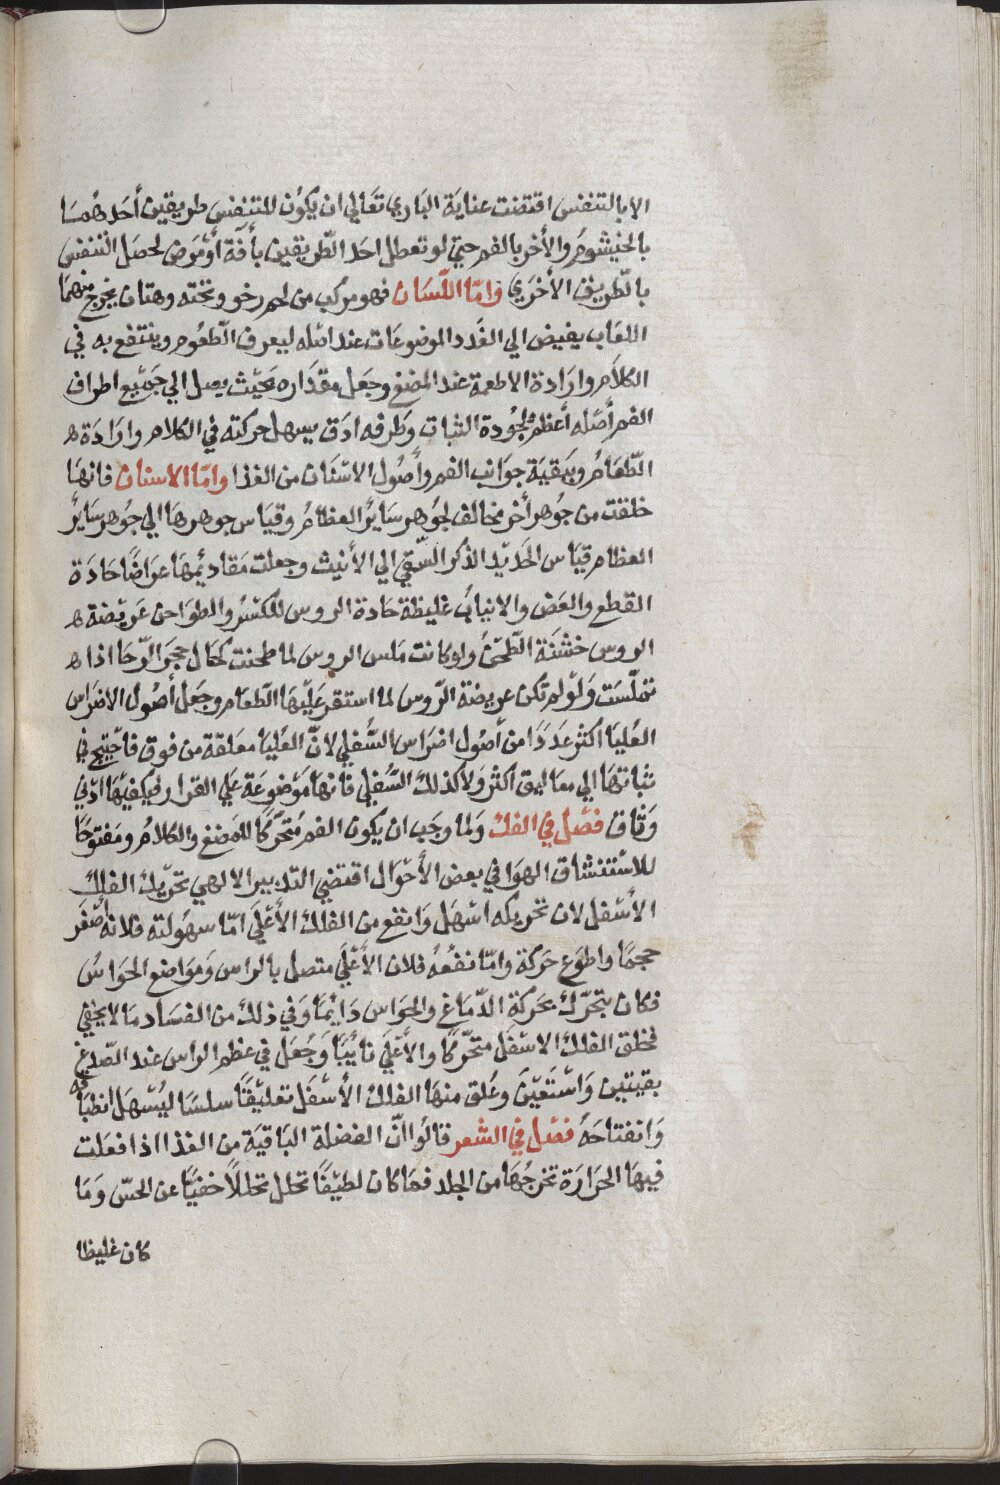 الا بالتنفس اقتضت عناية الباري تعالي ان يكون للتنفس طريقين أحدهما
بالخيشوم والأخر بالفم حتي لو تعطل احد الطريقين بأفة أو مرض لحصل التنفس
بالطريق الأخري واما اللسان فهو مركب من لحم رخو وتحته وهتان يخرج منهما
اللعاب يفيض الي الغدد الموضوعات عند اصله ليعرف الطعوم وينتفع به في
الكلام وارادة الاطعمة عند المضغ وجعل مقداره بحيث يصل الي جميع اطراف
الفم أصله أعظم لجودة الثبات وطرفه ادق يسهل حركته في الكلام وارادة ه
الطعام وببقية جوانب الفم وأصول الاسنان من الغذا واما الاسنان فانها
خلقت من جوهر أخر مخالف لجوهر سائر العظام وقياس جوهرها الي جوهر سائر
العظام قياس الحديد الذكر السقي الي الأنيث وجعلت مقاديمها عراضا حادة
القطع والعض والانياب غليظة حادة الروس للكسر والطواحن عريضة ه
الروس خشنة الطحن ولو كانت ملس الروس لما طحنت كحال حجر الرحا اذا ه
تملست ولو لم تكن عريضة الروس لما استقر عليها الطعام وجعل أصول الاضراس
العليا أكثر عددا من أصول اضراس السفلي لان العليا معلقة من فوق فاحتيج في
ثباتها الي معاليق أكثر ولا كذلك السفلي فانها موضوعة علي القرار فيكفيها ادني
وثاق فصل في الفك ولما وجب ان يكون الفم متحركا للمضغ والكلام ومفتوحا
للاستنشاق الهوا في بعض الأحوال اقتضي التدبير الالهي تحريك الفك
الأسفل لان تحريكه اسهل وانفع من الفك الأعلي اما سهولته فلانه اصغر
حجما واطوع حركة واما نفعه فلان الأعلي متصل بالراس ومواضع الحواس
فكان يتحرك بحركة الدماغ والحواس دايما وفي ذلك من الفساد ما لا يخفي
فخلق الفك الاسفل متحركا والأعلي نايبا وجعل في عظم الراس عند الصدغ
بقيتين واستعين وعلق منها الفك الأسفل تعليقا سلسا ليسهل انطباقه
وانفتاحه فصل في الشعر قالوا ان الفضلة الباقية من الغذا اذا فعلت
فيها الحرارة تخرجها من الجلد فما كان لطيفا تحلل تحللا خفيا عن الحس وما
كان غليظا